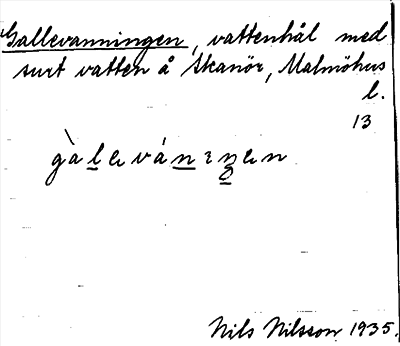 Gallevanningen, vattenhål med
surt vatten å Skanör, Malmöhus
l.
13
Nils Nilsson 1935.